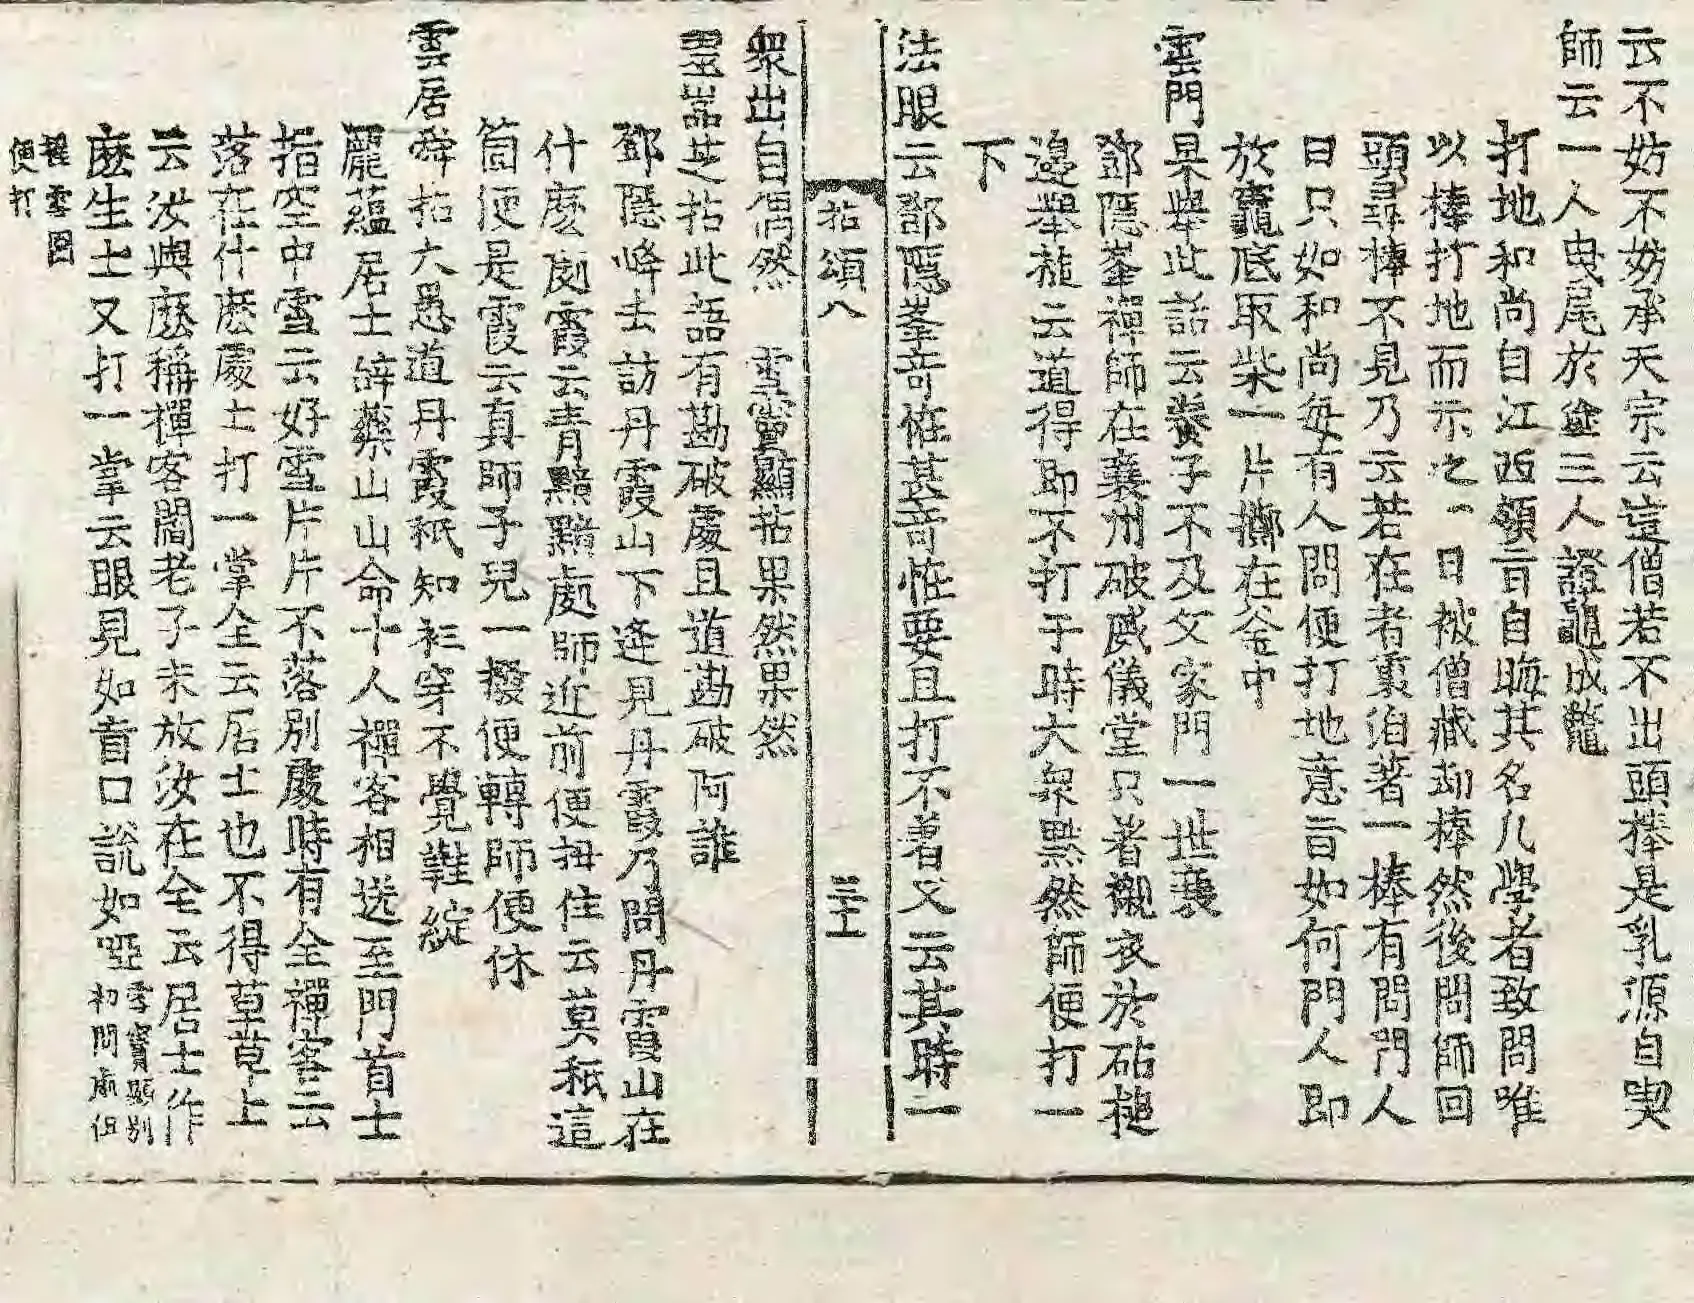 云不妨不妨承天宗云這僧若不出頭棒是乳源自喫
師云一人曳尾於塗三人證龜成鼈
打地和尚自江西領旨自晦其名凡學者致問唯
以棒打地而示之一日被僧藏却棒然後問師回
頭尋棒不見乃云若在者裏泊著一棒有問門人
曰只如和尚每有人問便打地意旨如何門人即
於竈底取柴一片擲在釜中
雲門杲舉此話云養子不及父家門一世衰
鄧隱峯禪師在襄州破威儀堂只著襯衣於砧槌
邊舉槌云道得即不打于時大衆黙然師便打一
下
法眼云鄧隱峯奇恠甚奇恠要且打不著又云其時一
拈頌八 三十
衆出自偶然 雪竇顯拈果然果然
瑯瑘芝拈此語有勘破處且道勘破阿誰
鄧隱峰去訪丹霞山下逢見丹霞乃問丹霞山在
什麽處霞云青黯黯處師近前便搊住云莫秖這
箇便是霞云真師子兒一撥便轉師便休
雲居舜拈大愚道丹霞秖知衫穿不覺鞋綻
龐蘊居士辭藥山山命十人禪客相送至門首士
指空中雪云好雪片片不落别處時有全禪客云
落在什麽處士打一掌全云居士也不得草草士
云汝與麽稱禪客閻老子未放汝在全云居士作
麽生士又打一掌云眼見如盲口說如啞
雪竇顯别
初問處但
握雪團
便打